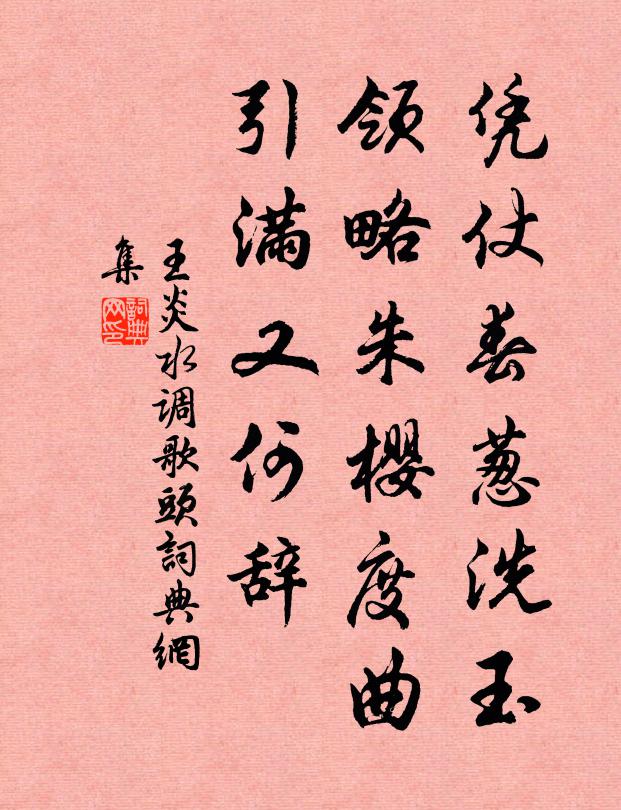 凭仗春葱洗玉
领略朱樱度曲
引满又何辞
王炎水调歌頭詞典網
集
詞典网印